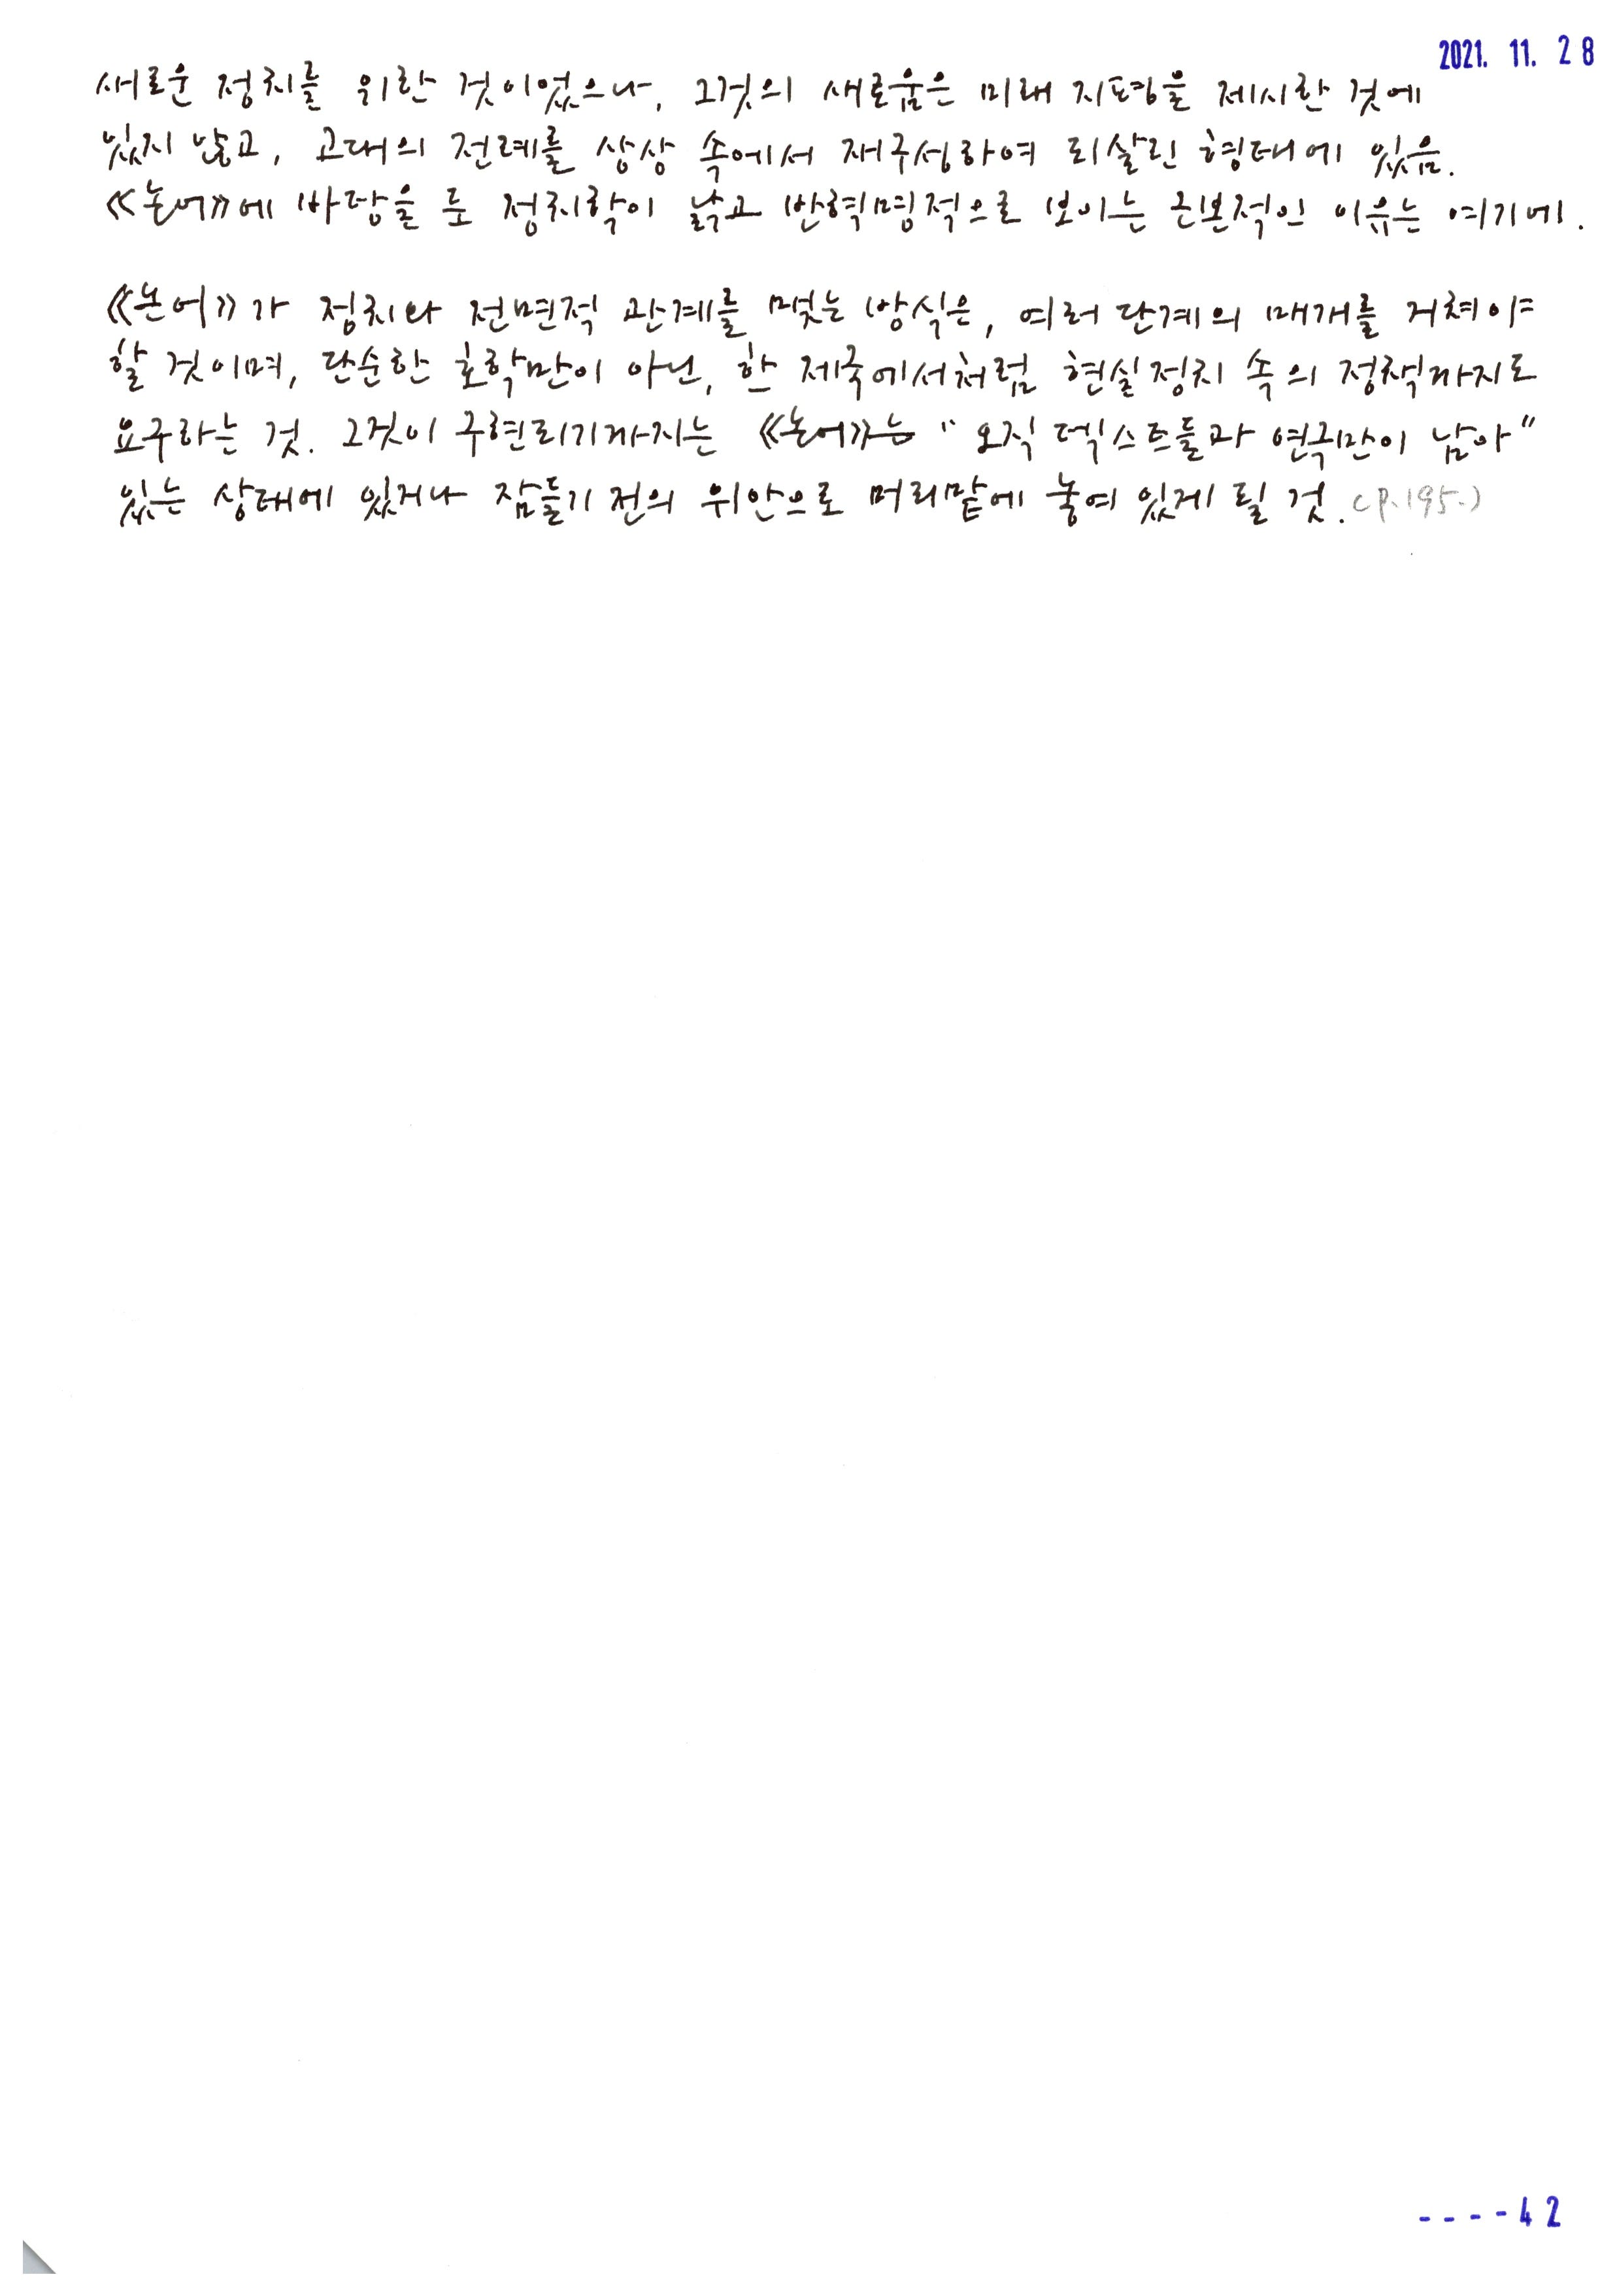 2021. 11. 28
새로운 정치를 위한 것이었으나, 그것의 새로움은 미래 지평을 제시한 것에
있지 않고, 고대의 전례를 상상 속에서 재구성하여 되살린 형태에 있음.
《논어》에 바탕을 둔 정치학이 낡고 반혁명적으로 보이는 근본적인 이유는 여기에.
《논어》가 정치와 전면적 관계를 맺는 방식은, 여러 단계의 매개를 거쳐야
할 것이며, 단순한 호학만이 아닌, 한 제국에서처럼 현실정치 속의 정책까지도
요구하는 것. 그것이 구현되기까지는 《논어》는 "오직 텍스트들과 연구만이 남아"
있는 상태에 있거나 잠들기 전의 위안으로 머리맡에 놓여 있게 될 것. (p.195.)
----42